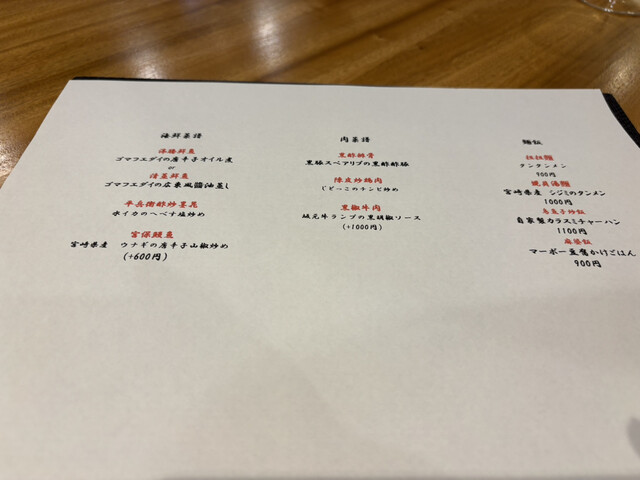 海鮮菜譜
沸騰鮮魚
ゴマフエダイの唐辛子オイル煮
or
清蒸鮮魚
ゴマフエダイの広東風醤油蒸し
平兵衛酢炒墨花
水イカのヘベす塩炒め
宮保鰻魚
宮崎県産 ウナギの唐辛子山椒炒め
(+600円)
肉菜譜
黒酢排骨
黒豚スペアリブの黒酢酢豚
陳皮炒鶏肉
じどっこのチンピ炒め
黒椒牛肉
城元牛ランプの黒胡椒ソース
(+1000円)
麺飯
担担麺
タンタンメン
900円
蜆貝湯麺
宮崎県産 シジミのタンメン
1000円
烏魚子炒飯
自家製カラスミチャーハン
1100円
麻婆飯
マーボー豆腐かけごはん
900円